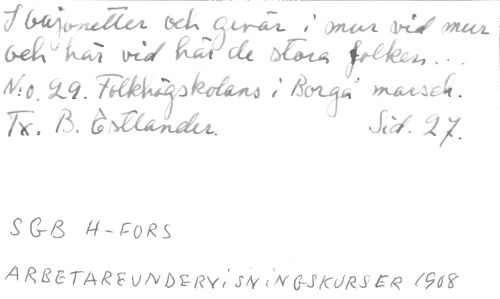 I bajonetter och gevär i mur vid mur
och här vid här de stora folken...
N:o. 29. Folkhögskolans i Borgå marsch.
Tx. B. Estlander. Sid. 27.
SGB H-FORS
ARBETAREUNDERVISNINGSKURSER 1908